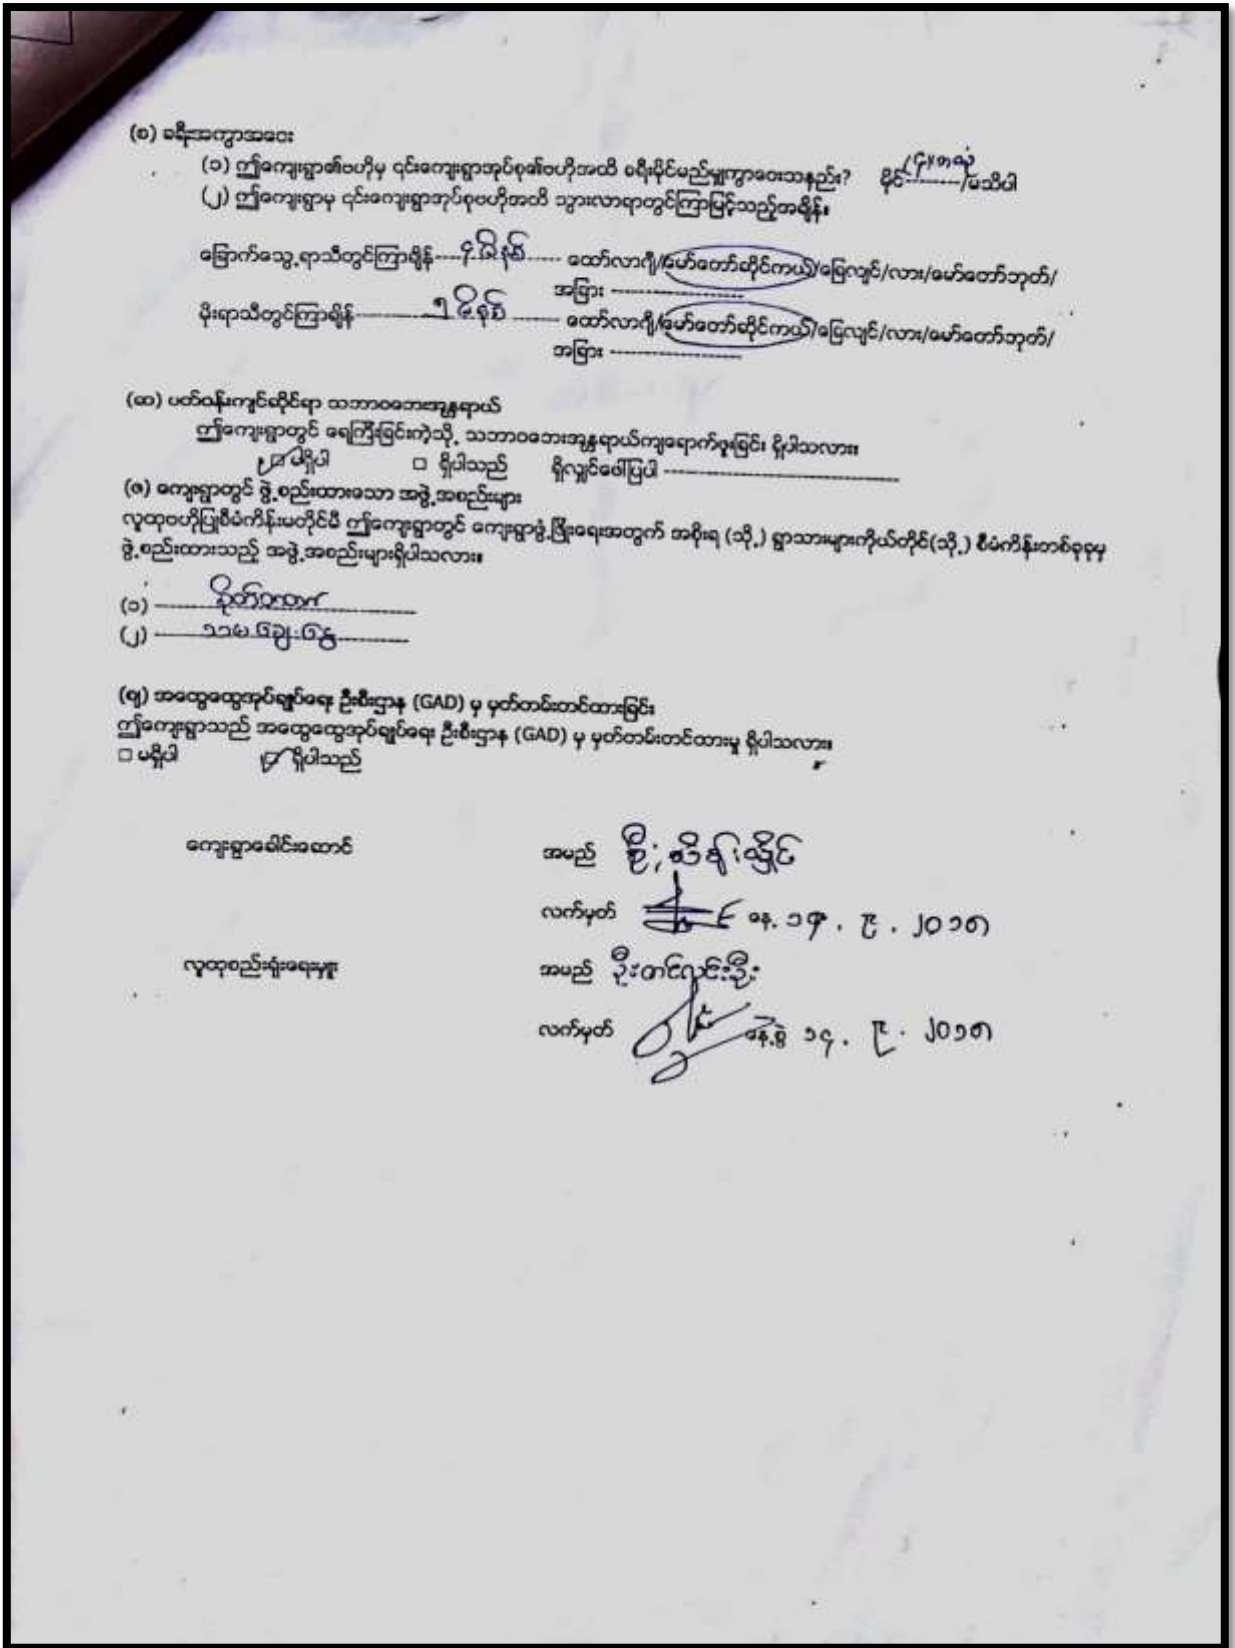 (စ) ခရီးအကွာအဝေး
(၁) ဤကျေးရွာ၏ဗဟိုမှ ၎င်းကျေးရွာအုပ်စု၏ဗဟိုအထိ ခရီးမိုင်မည်မျှကွာဝေးသနည်း? မိုင်----------/မသိပါ
(၂) ဤကျေးရွာမှ ၎င်းကျေးရွာအုပ်စုဗဟိုအထိ သွားလာရာတွင်ကြာမြင့်သည့်အချိန်။
ခြောက်သွေ့ရာသီတွင်ကြာချိန်-----၄ မိနစ်------ ထော်လာဂျီ/မော်တော်ဆိုင်ကယ်/ခြေလျင်/လား/မော်တော်ဘုတ်/
အခြား --------------------
မိုးရာသီတွင်ကြာချိန်------------၅ မိနစ် -------- ထော်လာဂျီ/မော်တော်ဆိုင်ကယ်/ခြေလျင်/လား/မော်တော်ဘုတ်/
အခြား --------------------
(ဆ) ပတ်ဝန်းကျင်ဆိုင်ရာ သဘာဝဘေးအန္တရာယ်
ဤကျေးရွာတွင် ရေကြီးခြင်းကဲ့သို့ သဘာဝဘေးအန္တရာယ်ကျရောက်ဖူးခြင်း ရှိပါသလား။
☑ မရှိပါ □ ရှိပါသည် ရှိလျှင်ဖေါ်ပြပါ -----------------------------------
(ဇ) ကျေးရွာတွင် ဖွဲ့စည်းထားသော အဖွဲ့အစည်းများ
လူထုဗဟိုပြုစီမံကိန်းမတိုင်မီ ဤကျေးရွာတွင် ကျေးရွာဖွံ့ဖြိုးရေးအတွက် အစိုးရ (သို့) ရွာသားများကိုယ်တိုင်(သို့) စီမံကိန်းတစ်ခုခုမှ
ဖွဲ့စည်းထားသည့် အဖွဲ့အစည်းများရှိပါသလား။
(၁) ---------------------------------------
(၂) -------သမ.ချေး.ငွေ----------
(ဈ) အထွေထွေအုပ်ချုပ်ရေး ဦးစီးဌာန (GAD) မှ မှတ်တမ်းတင်ထားခြင်း
ဤကျေးရွာသည် အထွေထွေအုပ်ချုပ်ရေး ဦးစီးဌာန (GAD) မှ မှတ်တမ်းတင်ထားမှု ရှိပါသလား။
□ မရှိပါ ☑ ရှိပါသည်
ကျေးရွာခေါင်းဆောင် အမည် ဦးသိန်းလှိုင်
လက်မှတ် နေ့ ၁၄.၉.၂၀၁၈
လူထုစည်းရုံးရေးမှူး အမည် ဦးတင်လှင်ဦး
လက်မှတ် နေ့စွဲ ၁၄.၉.၂၀၁၈